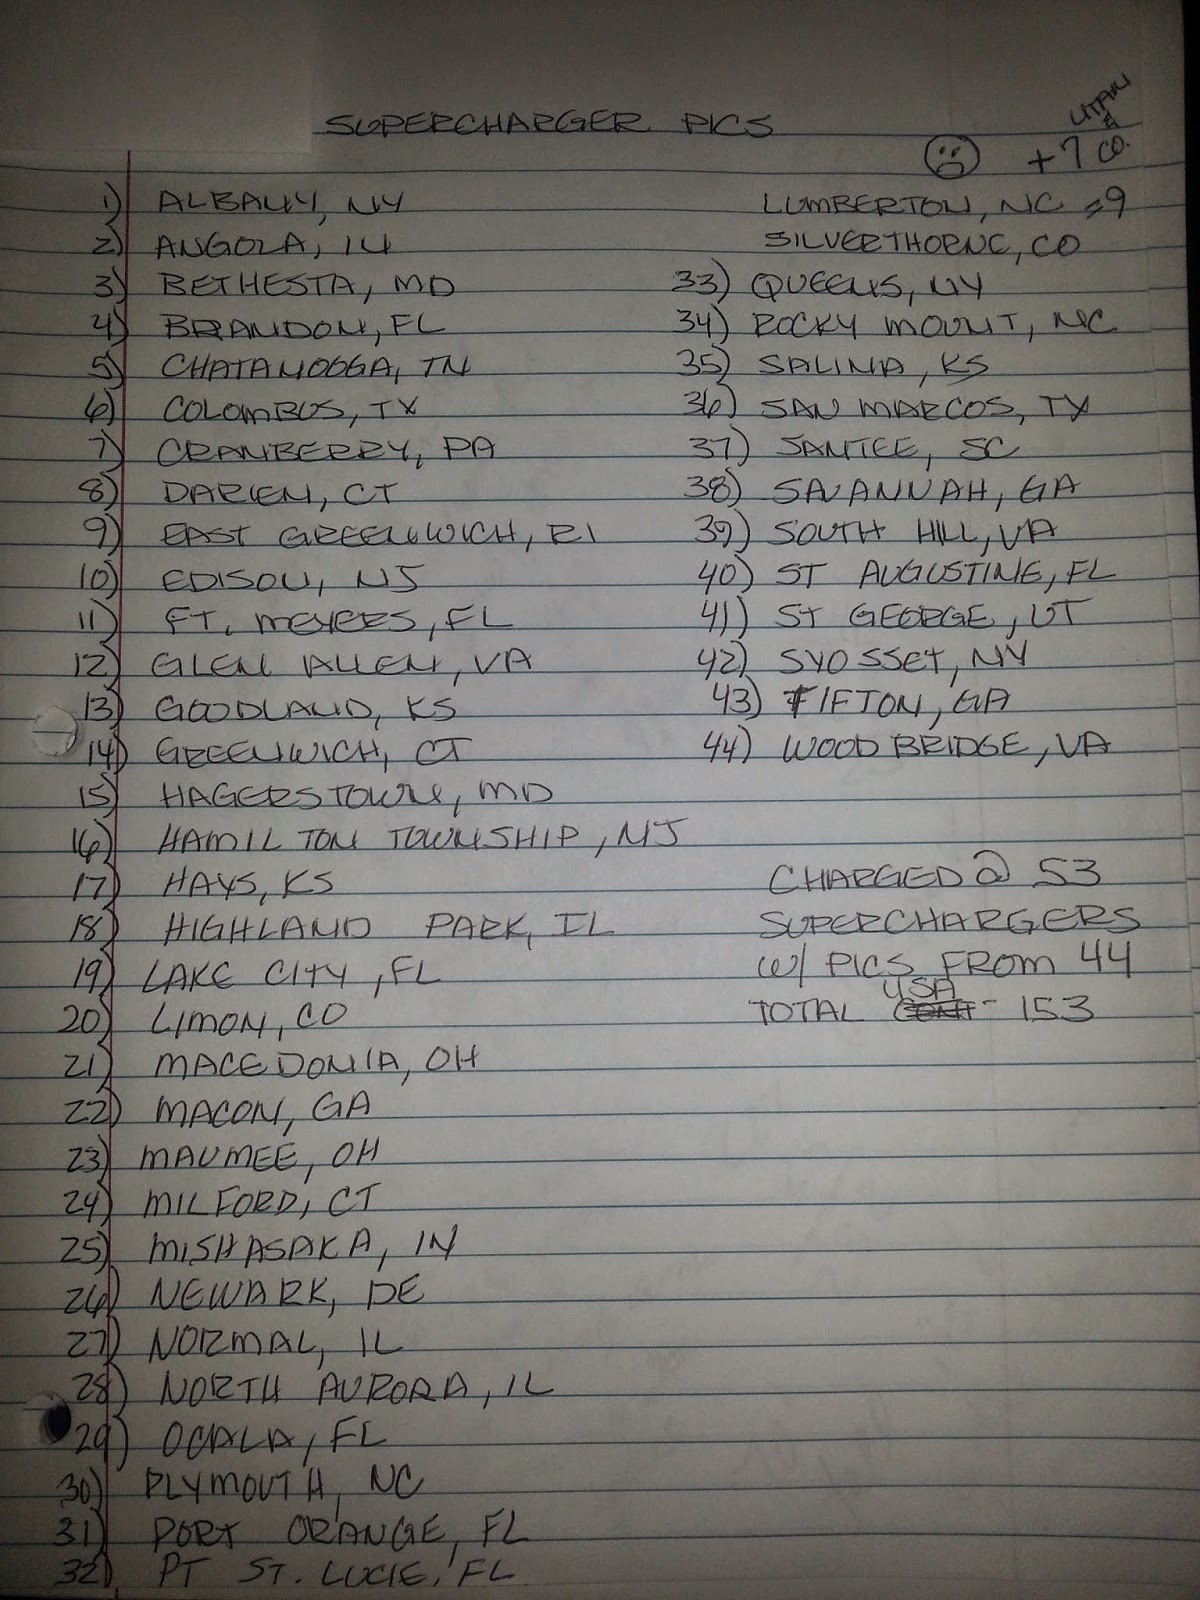 SUPERCHARGER PICS
UTAH
&
+7 CO.
1) ALBANY, NY
2) ANGOLA, IN
3) BETHESTA, MD
4) BRANDON, FL
5) CHATANOOGA, TN
6) COLOMBUS, TX
7) CRANBERRY, PA
8) DARIEN, CT
9) EAST GREENWICH, RI
10) EDISON, NJ
11) FT. MEYERS, FL
12) GLEN ALLEN, VA
13) GOODLAND, KS
14) GREENWICH, CT
15) HAGERSTOWN, MD
16) HAMILTON TOWNSHIP, NJ
17) HAYS, KS
18) HIGHLAND PARK, IL
19) LAKE CITY, FL
20) LIMON, CO
21) MACEDONIA, OH
22) MACON, GA
23) MAUMEE, OH
24) MILFORD, CT
25) MISHASAKA, IN
26) NEWARK, DE
27) NORMAL, IL
28) NORTH AURORA, IL
29) OCALA, FL
30) PLYMOUTH, NC
31) PORT ORANGE, FL
32) PT ST. LUCIE, FL
LUMBERTON, NC =9
SILVERTHORNE, CO
33) QUEENS, NY
34) ROCKY MOUNT, NC
35) SALINA, KS
36) SAN MARCOS, TX
37) SANTEE, SC
38) SAVANNAH, GA
39) SOUTH HILL, VA
40) ST AUGUSTINE, FL
41) ST GEORGE, UT
42) SYOSSET, NY
43) TIFTON, GA
44) WOODBRIDGE, VA
CHARGED @ 53
SUPERCHARGERS
W/ PICS FROM 44
TOTAL USA - 153